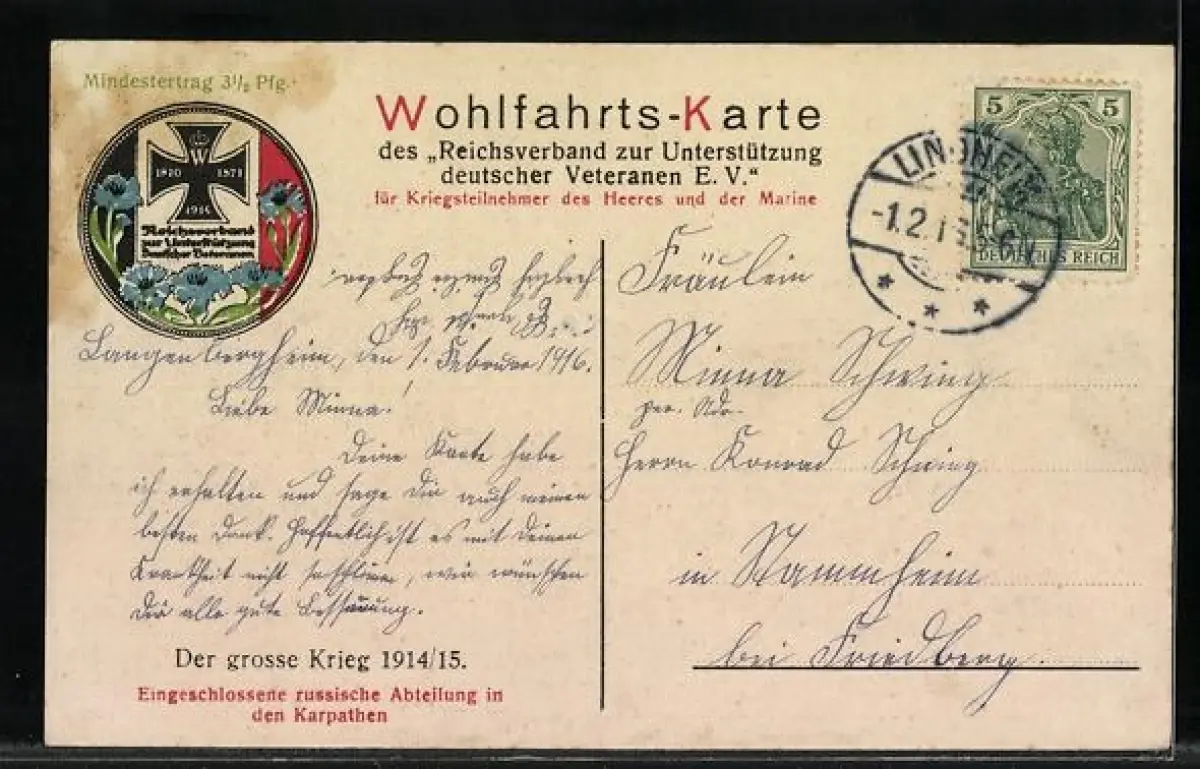 Mindestertrag 3½ Pfg.
W
1870 1871
1914
Reichsverband
zur Unterstützung
Deutscher Veteranen
Wohlfahrts-Karte
des „Reichsverband zur Unterstützung
deutscher Veteranen E. V.“
für Kriegsteilnehmer des Heeres und der Marine
5 5
DEUTSCHES REICH
LINDHEIM
-1.2.1 5-6N
* * *
Langenbergheim, den 1. Februar 1916.
Liebe Minna!
Deine Karte habe
ich erhalten und sage Dir auch meinen
besten Dank. Hoffentlich ist es mit Deinen
Krankheit nicht so schlimm, wir wünschen
Dir alle gute Besserung.
Der grosse Krieg 1914/15.
Eingeschlossene russische Abteilung in
den Karpathen
Fräulein
Minna Schwing
per. Adr.
Herrn Konrad Schwing
in Stammheim
bei Friedberg.